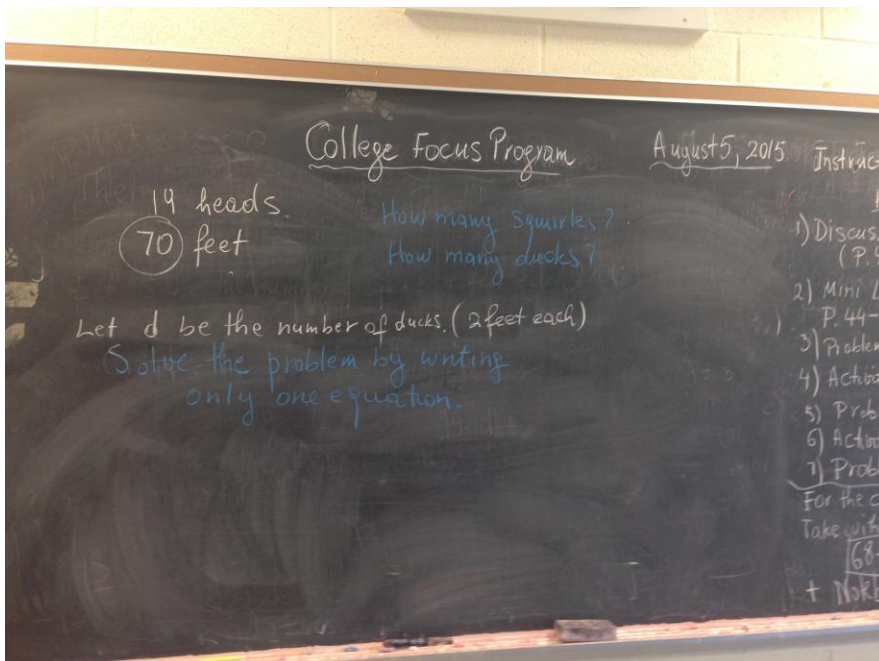 College Focus Program
August 5, 2015
19 heads.
70 feet
How many squirles?
How many ducks?
Let d be the number of ducks. (2 feet each)
Solve the problem by writing
only one equation.
Instruc
1) Discus
(P.4
2) Mini L
P. 44-
3) Problem
4) Activi
5) Prob
6) Activi
7) Probl
For the c
Take with
68-
+